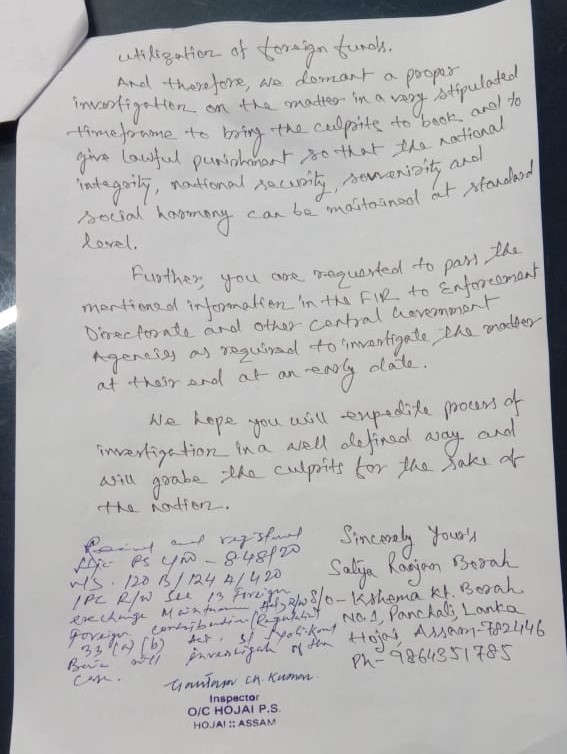 utilization of foreign funds.
And therefore, we demant a proper
investigation on the matter in a very stipulated
timeframe to bring the culprits to book and to
give lawful punishment so that the national
integrity, national security, soverisity and
social harmony can be maitained at standard
level.
Further, you are requested to pass the
mentioned information in the FIR to Enforcement
Directorate and other Central Government
Agencies as required to investigate the matter
at their end at an early date.
We hope you will expedite process of
investigation in a well defined way and
will grabe the culprits for the sake of
the nation.
Sincerely Your's
Satya Ranjan Borah
S/o - Kshama Kt. Borah
No. 1, Panchali, Lanka
Hojai, Assam-782446
Ph- 9864351785
and registered
PS 848/20
U/S. 120 B/124 A/420
IPC R/W Sec 13 Foreign
exchange
Foreign contribution (Regulation
33 (a) (b) Act. SI
will investigate
case.
Inspector
O/C HOJAI P.S.
HOJAI :: ASSAM